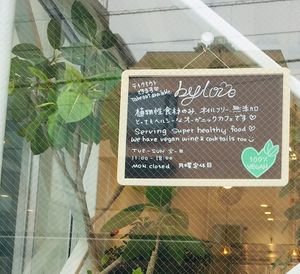 テイクアウト
できます♡
Take out available
by love
植物性食材のみ、オイルフリー、無添加
とってもヘルシーなオーガニックカフェです♡
Serving Super healthy food ♡
We have vegan wine & cocktails too
TUE-SUN 火-日
11:00-18:00
MON closed 月曜定休日
100%
VEGAN